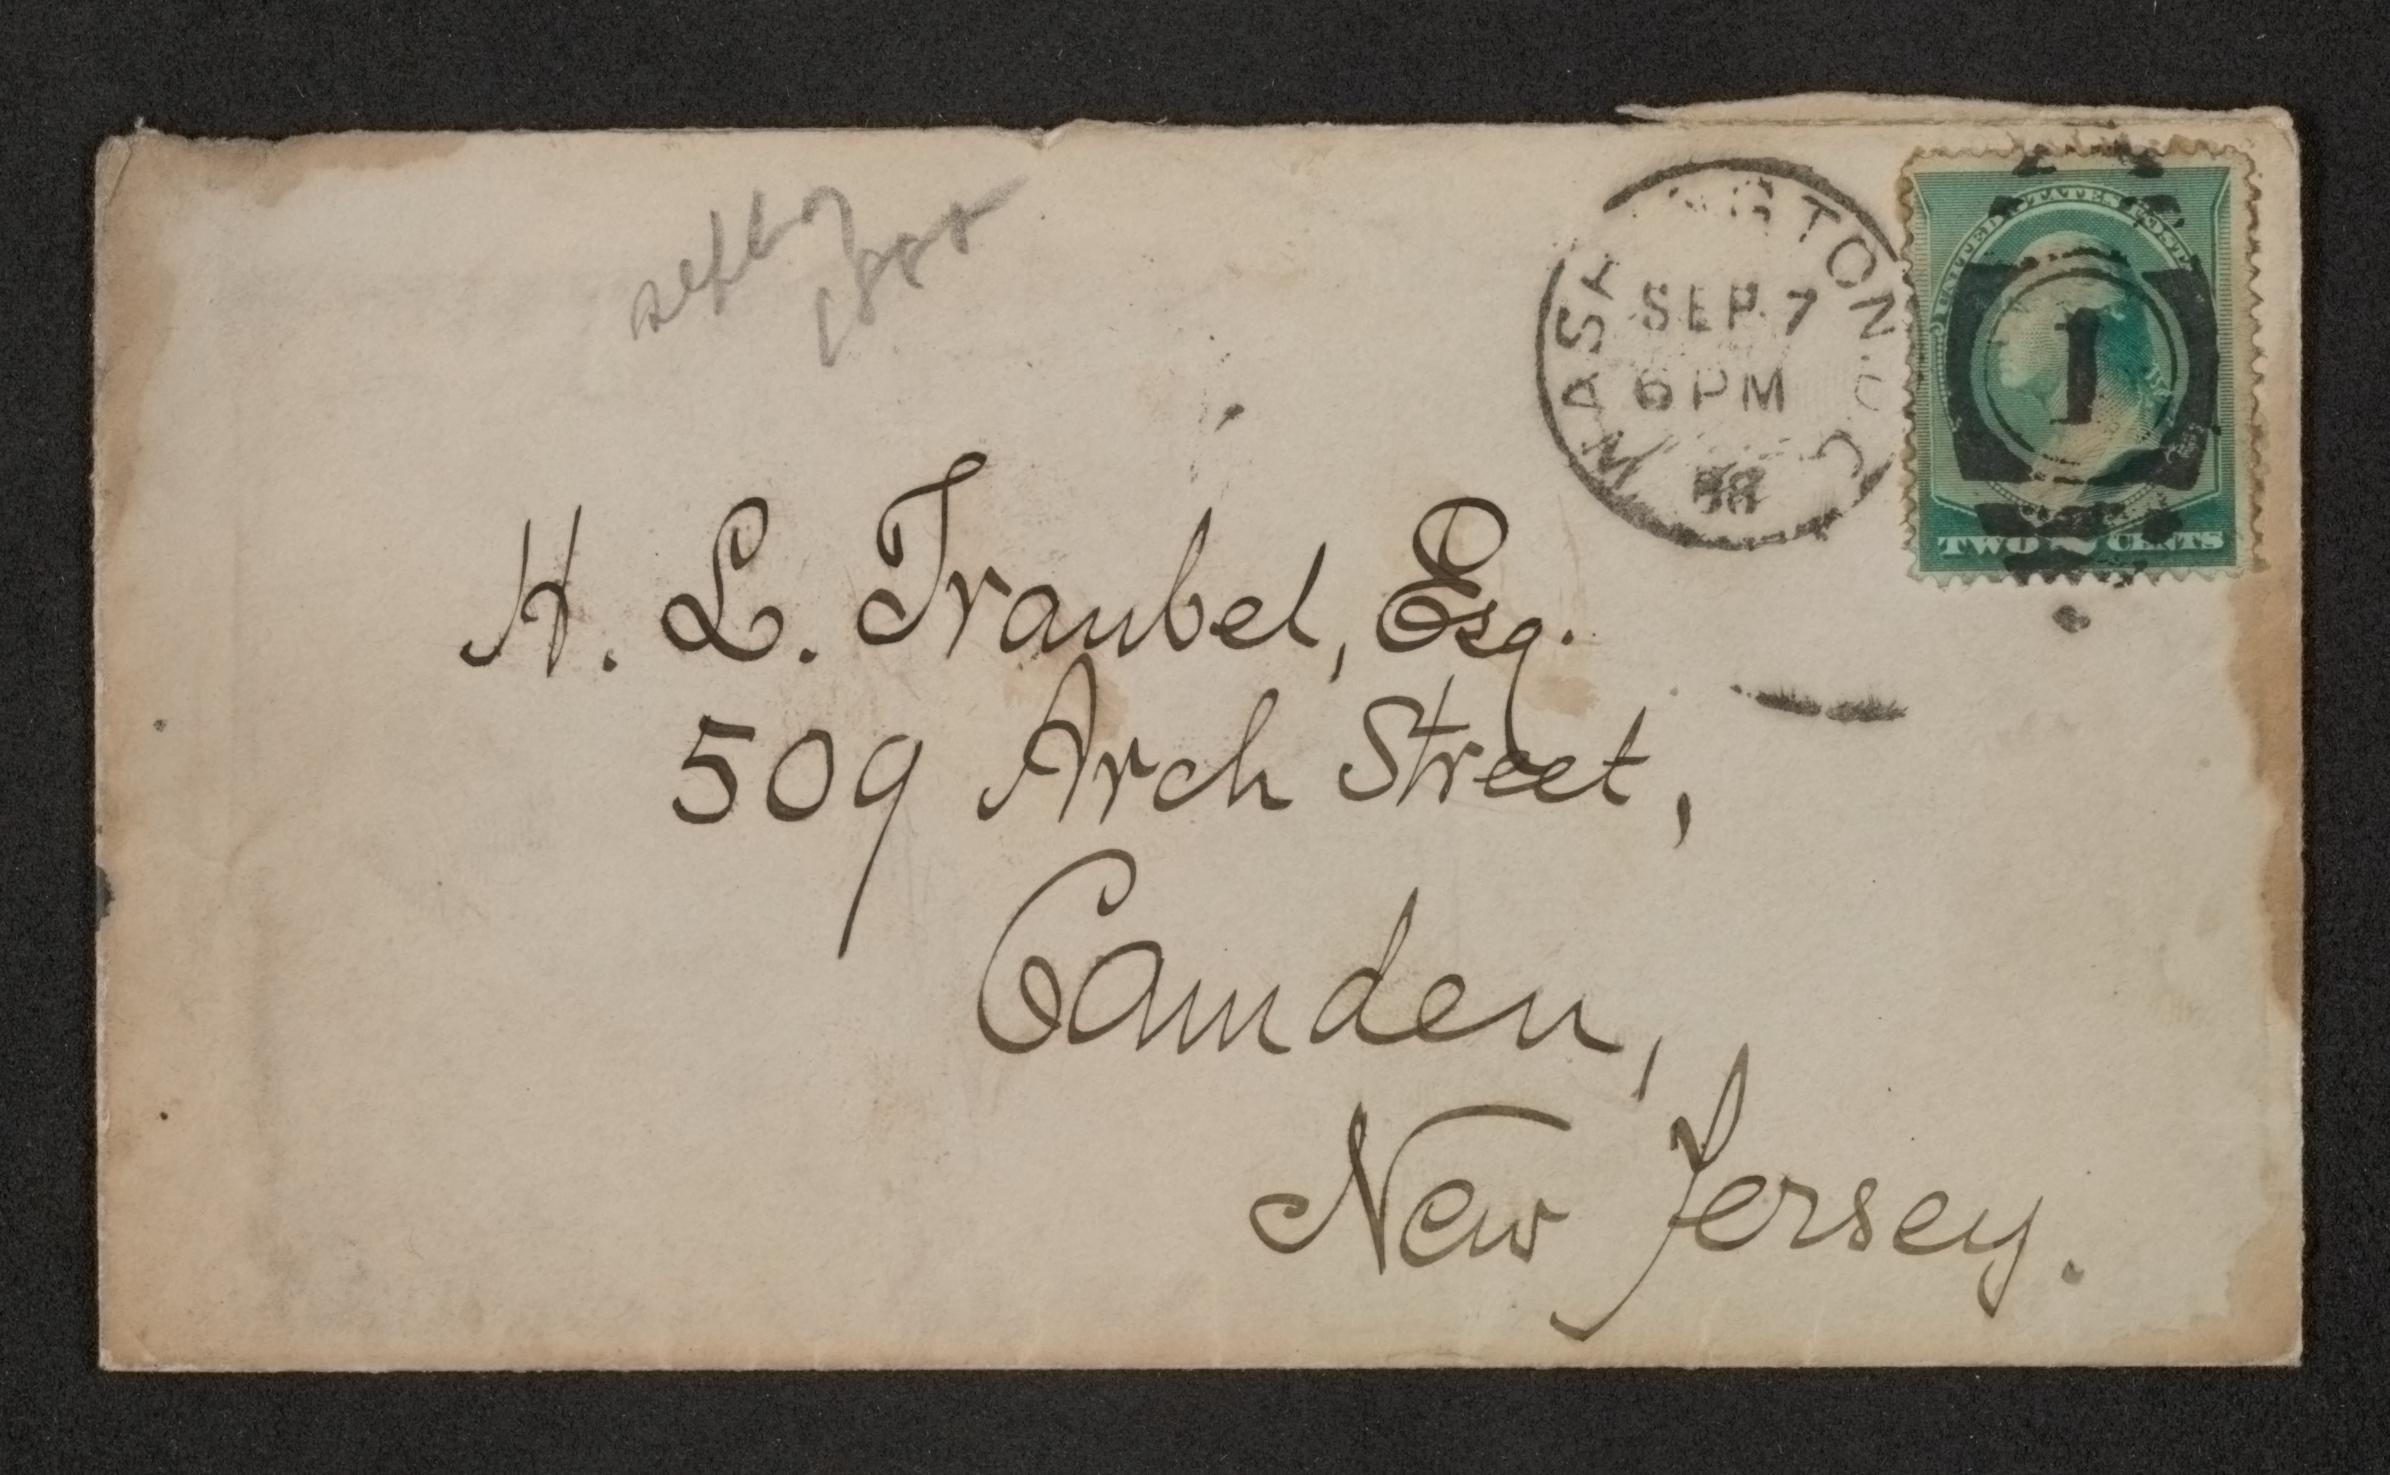 Sept 7
1888
WASHINGTON. D.C.
SEP. 7
6 PM
88
UNITED STATES POSTAGE
1
TWO 2 CENTS
H. L. Traubel, Esq.
509 Arch Street,
Camden,
New Jersey.